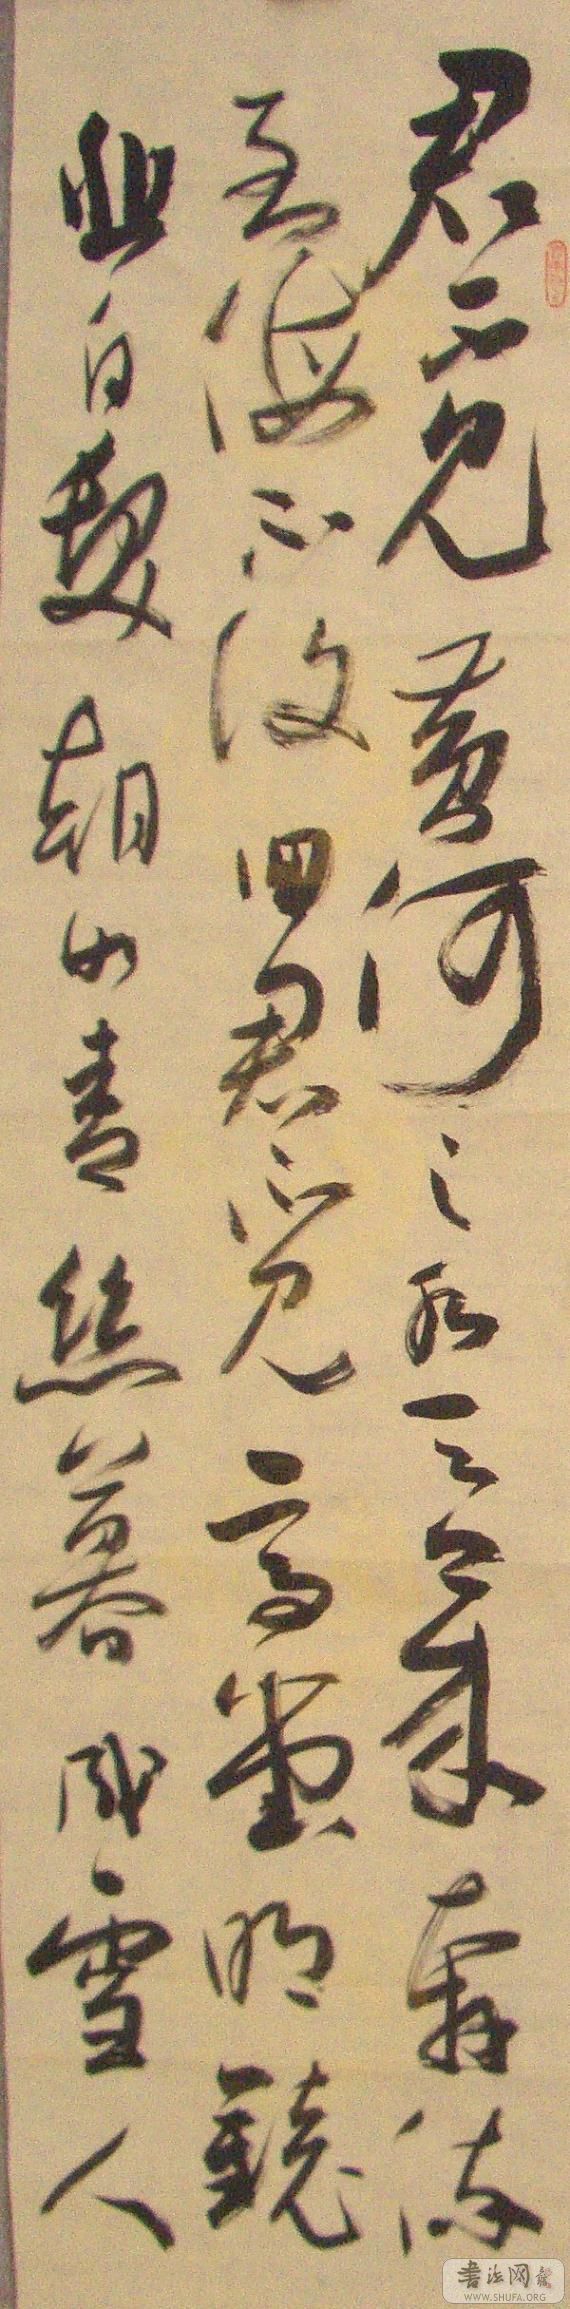 君不见黄河之水天上来奔流
至海不复回君不见高堂明镜
悲白发朝如青丝暮成雪人
书法网
WWW.SHUFA.ORG